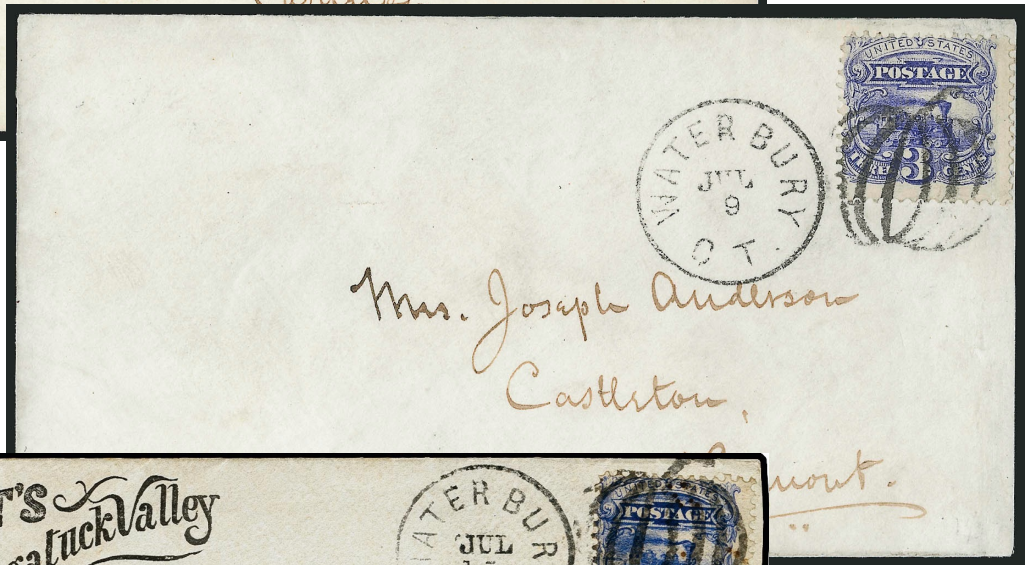 UNITED STATES
POSTAGE
THREE 3 CENTS
WATERBURY
JUL
9
CT.
Mrs. Joseph Anderson
Castleton,
mont.
T'S
gatuck Valley
WATERBUR
JUL
UNITED STATES
POSTAGE